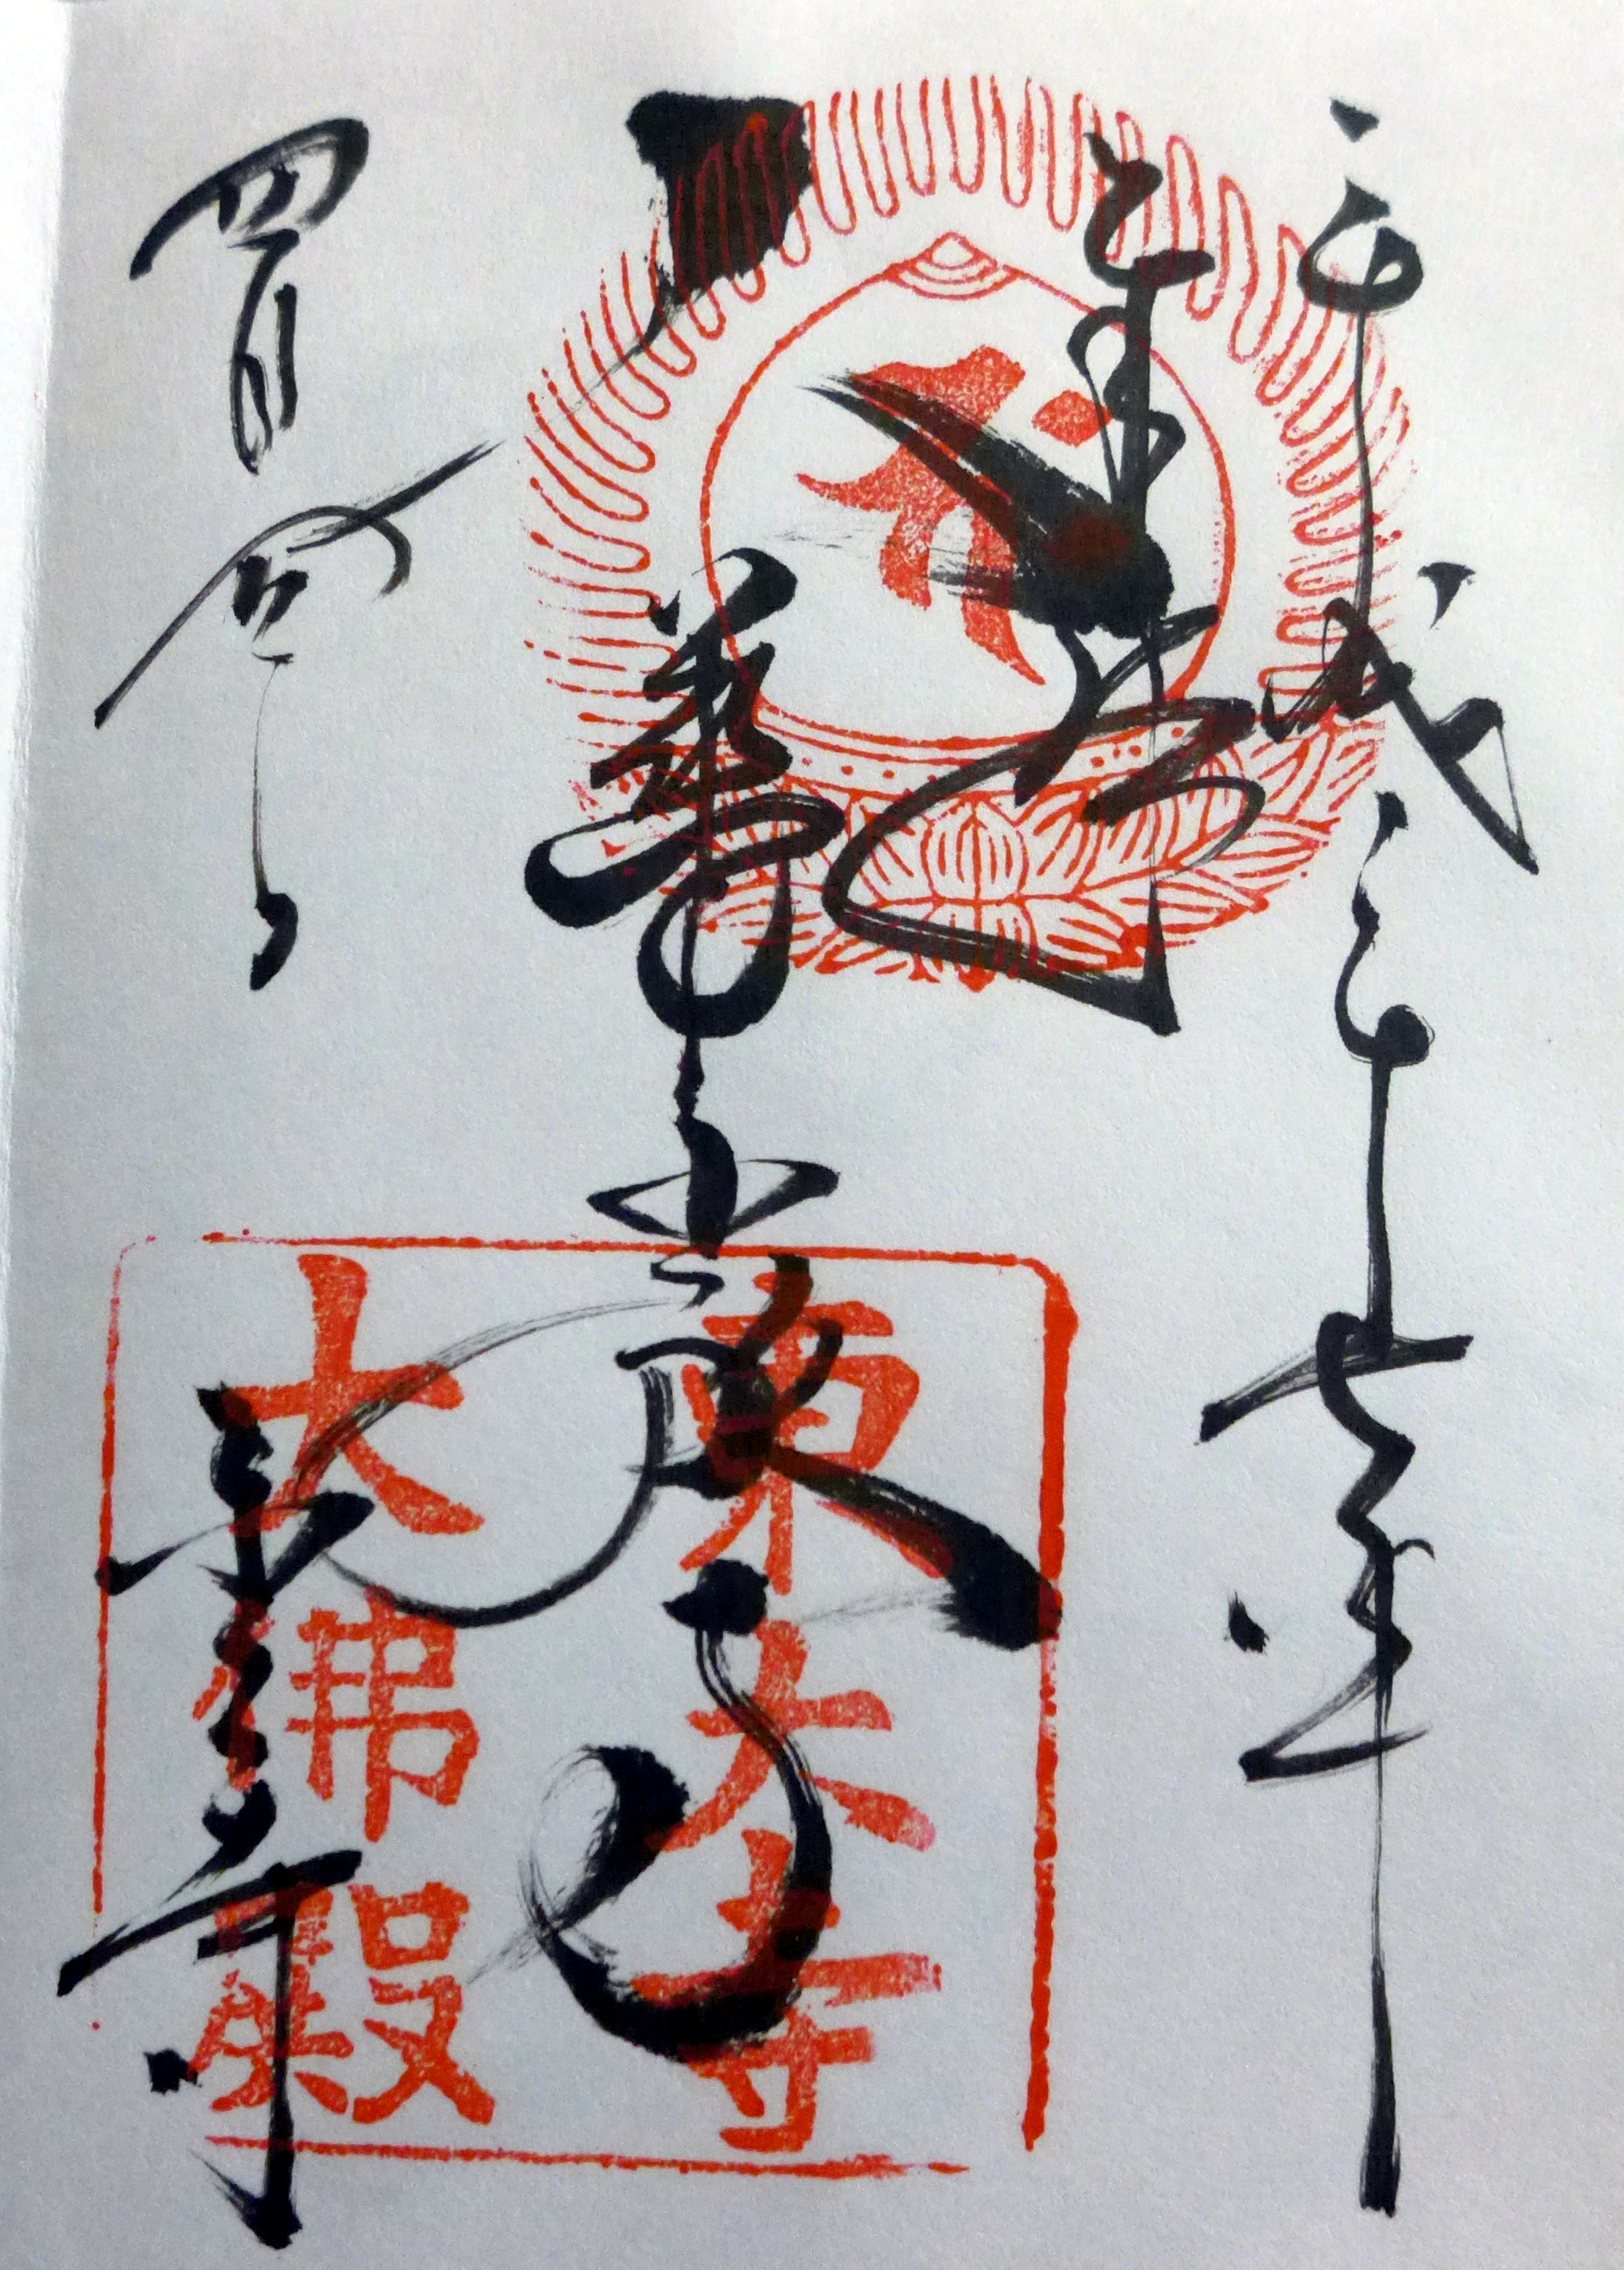 平成二十七年
奉拝
華厳
四月四日
東大寺
東大寺
大佛殿